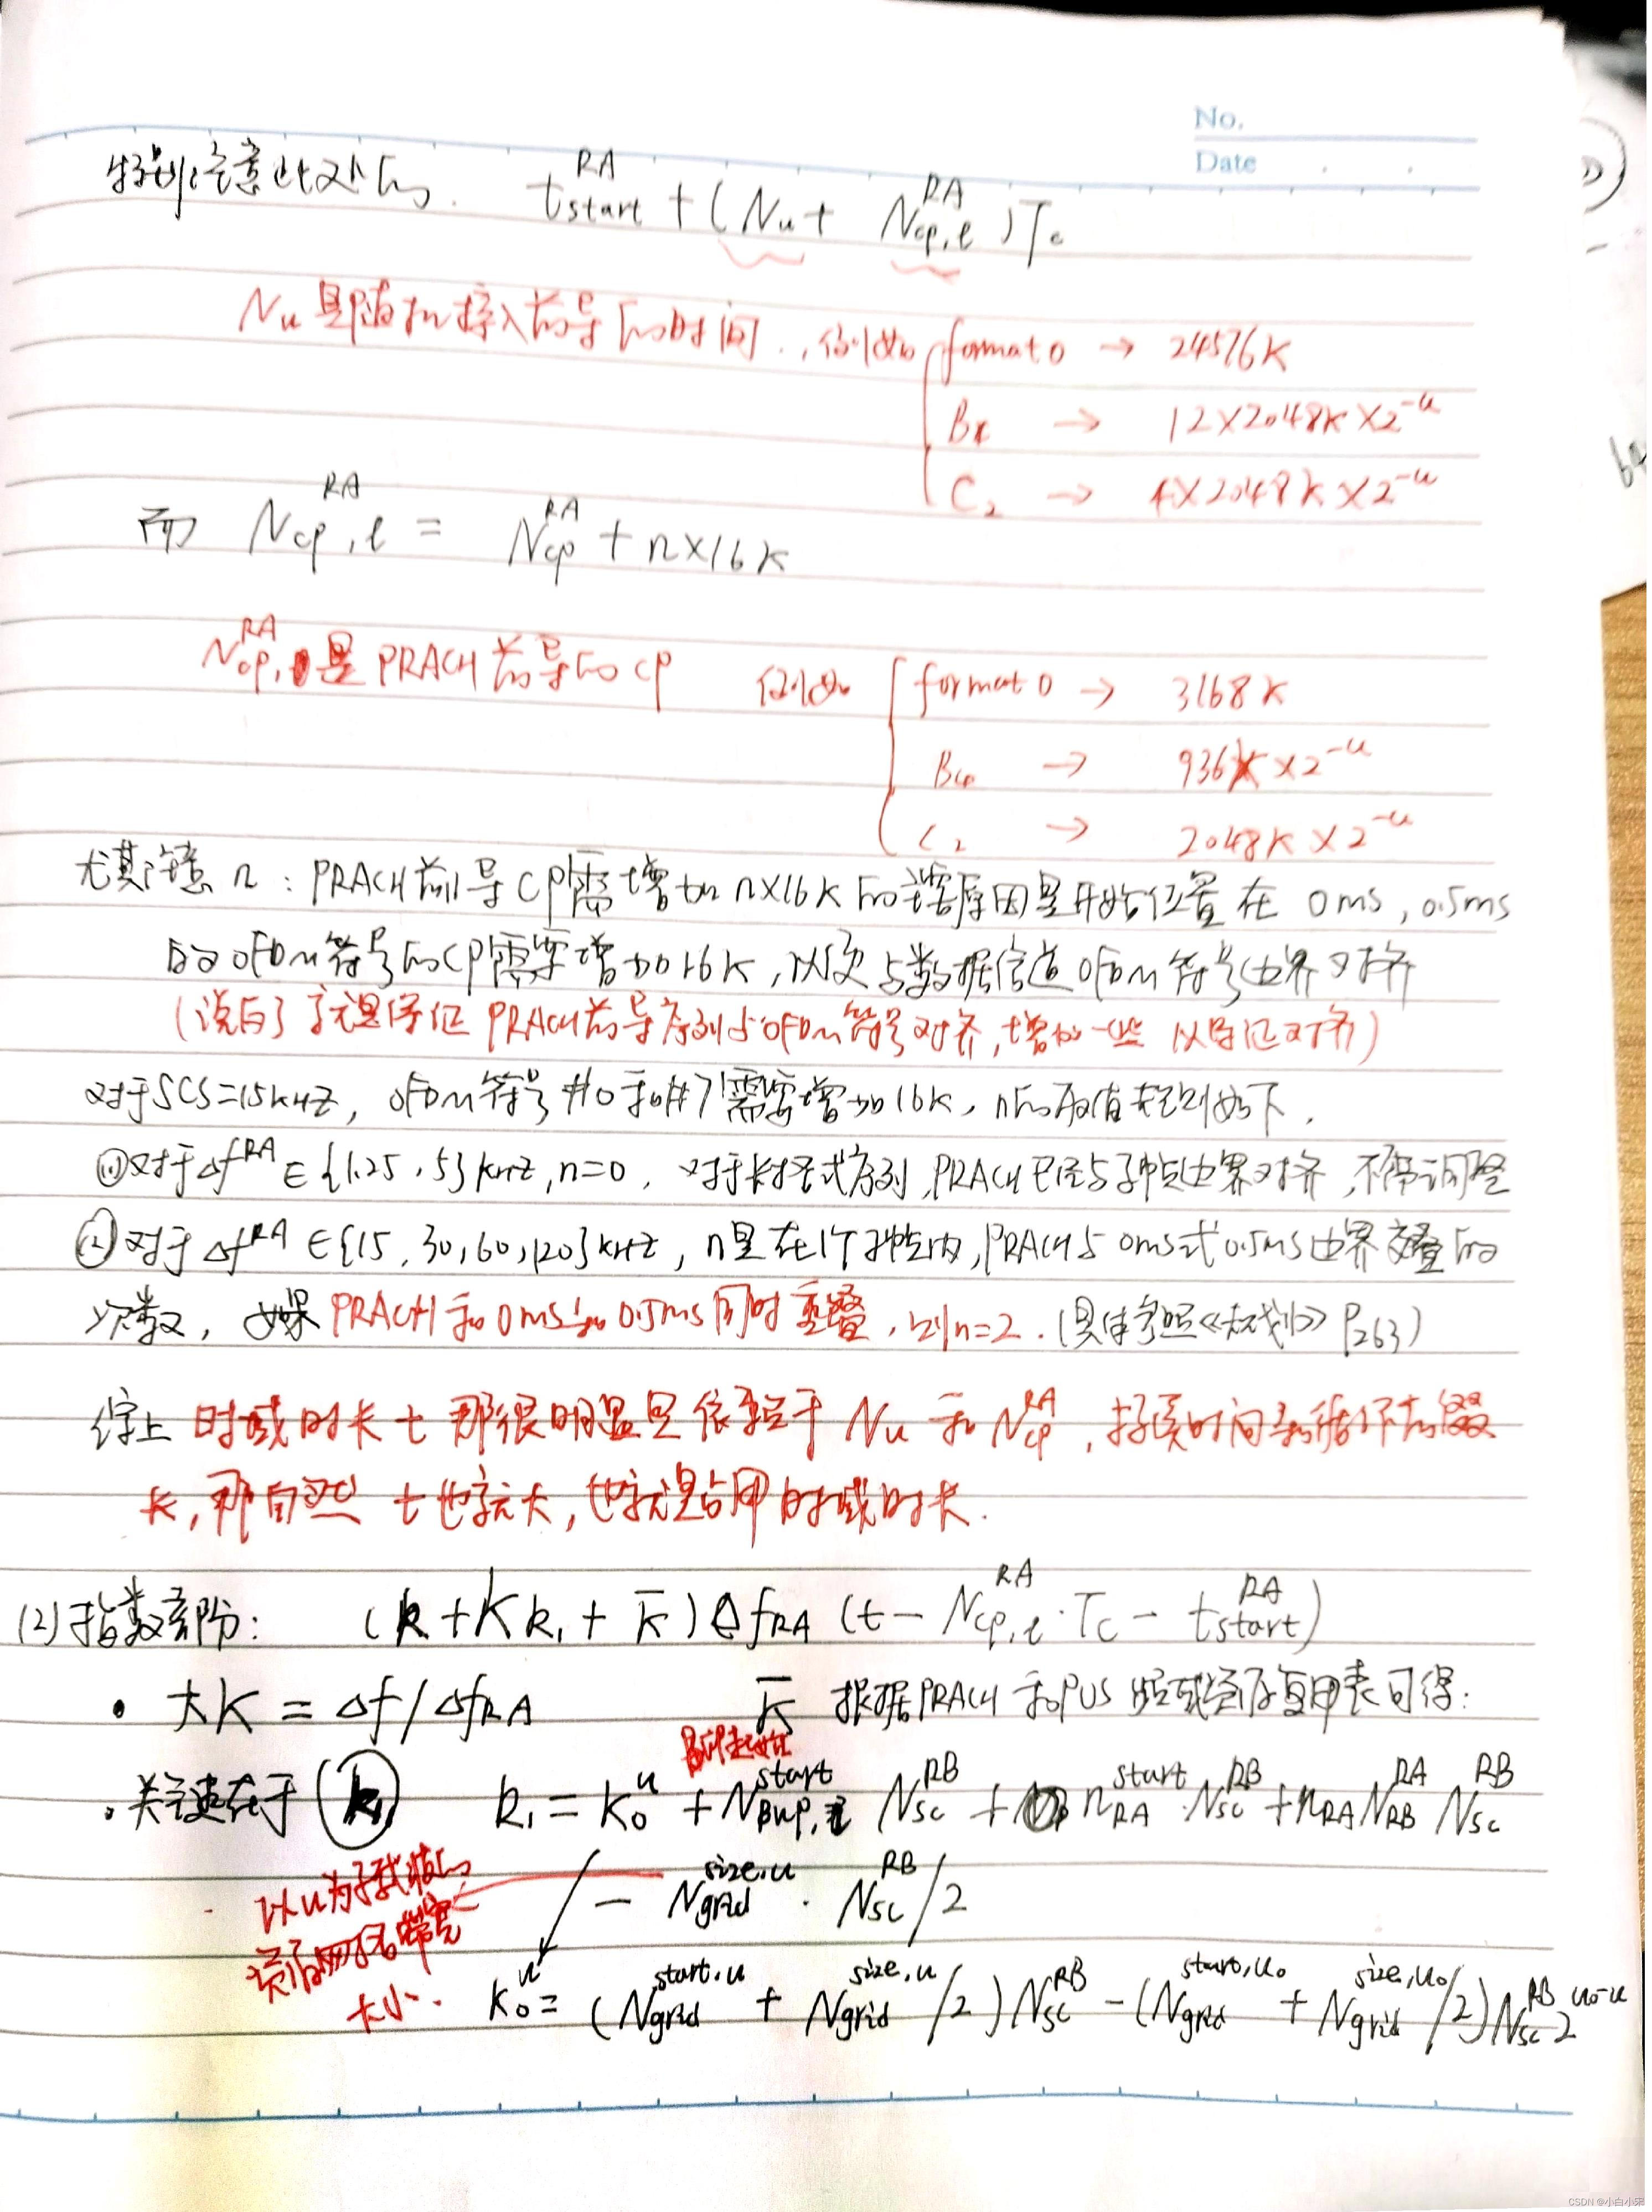 No.
Date
特别注意此处的. t_start^RA + (Nu + N_cp,l^RA) Tc
Nu 是随机接入前导的时间., 例如 format 0 → 24576K
B4 → 12×2048K×2^-u
C2 → 4×2048K×2^-u
而 N_cp,l^RA = N_cp^RA + n×16K
N_cp,^RA 是 PRACH 前导的 CP 例如 format 0 → 3168K
B4 → 936K×2^-u
C2 → 2048K×2^-u
尤其注意 n : PRACH 前导 CP需增加 n×16K 的 原因是开始位置在 0ms, 0.5ms
的 OFDM符号的CP需要增加16K, 以便与数据信道OFDM符号边界对齐
(说白了就是保证 PRACH前导序列与OFDM符号对齐, 增加一些 以保证对齐)
对于SCS=15kHz, OFDM符号 #0和#7需要增加16K, n的取值规则如下.
① 对于Δf^RA ∈ {1.25, 5} kHz, n=0, 对于长格式序列, PRACH已经与子帧边界对齐, 不需调整
② 对于Δf^RA ∈ {15, 30, 60, 120} kHz, n是在1个子帧内, PRACH与 0ms或0.5ms边界交叠的
次数, 如果 PRACH和0ms和0.5ms同时重叠, 则n=2. (具体参照《规划》P263)
综上 时域时长 t 那很明显是依赖于 Nu 和 N_cp^RA, 持续时间和循环前缀
长, 那自然 t 也就大, 也就是占用时域时长.
(2) 指数部分: (k + Kk₁ + k̄) Δf_RA (t − N_cp,l^RA · Tc − t_start^RA)
• 大K = Δf/Δf_RA k̄ 根据PRACH和PUS 频域资源复用表可得:
起始
• 关键在于 k₁ k₁ = k₀^u + N_BWP,i^start N_sc^RB + n_RA^start · N_sc^RB + n_RA N_RB^RA N_sc^RB
− N_grid^size,u · N_sc^RB / 2
以u为子载波的
资源网格带宽
大小.
k₀^u = (N_grid^start,u + N_grid^size,u / 2) N_sc^RB − (N_grid^start,u₀ + N_grid^size,u₀ / 2) N_sc^RB 2^u₀-u
CSDN @小白小宋